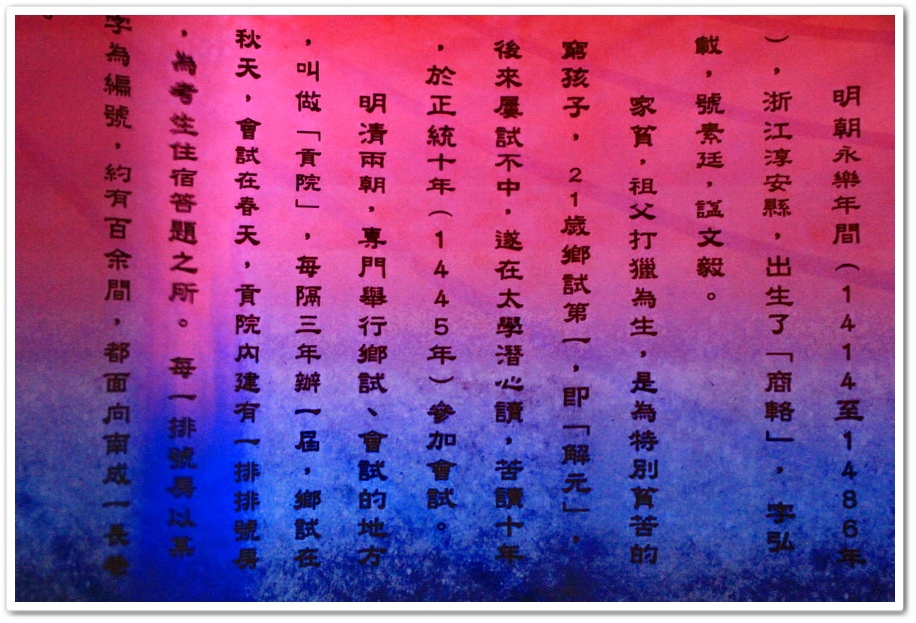 明朝永樂年間(1414至1486年
),浙江淳安縣,出生了「商輅」,字弘
載,號素廷,諡文毅。
家貧,祖父打獵為生,是為特別貧苦的
窮孩子,21歲鄉試第一,即「解元」,
後來屢試不中,遂在太學潛心讀,苦讀十年
,於正統十年(1445年)參加會試。
明清兩朝,專門舉行鄉試、會試的地方
,叫做「貢院」,每隔三年辦一屆,鄉試在
秋天,會試在春天,貢院內建有一排排號房
,為考生住宿答題之所。每一排號房以某
字為編號,約有百余間,都面向南成一長巷
。